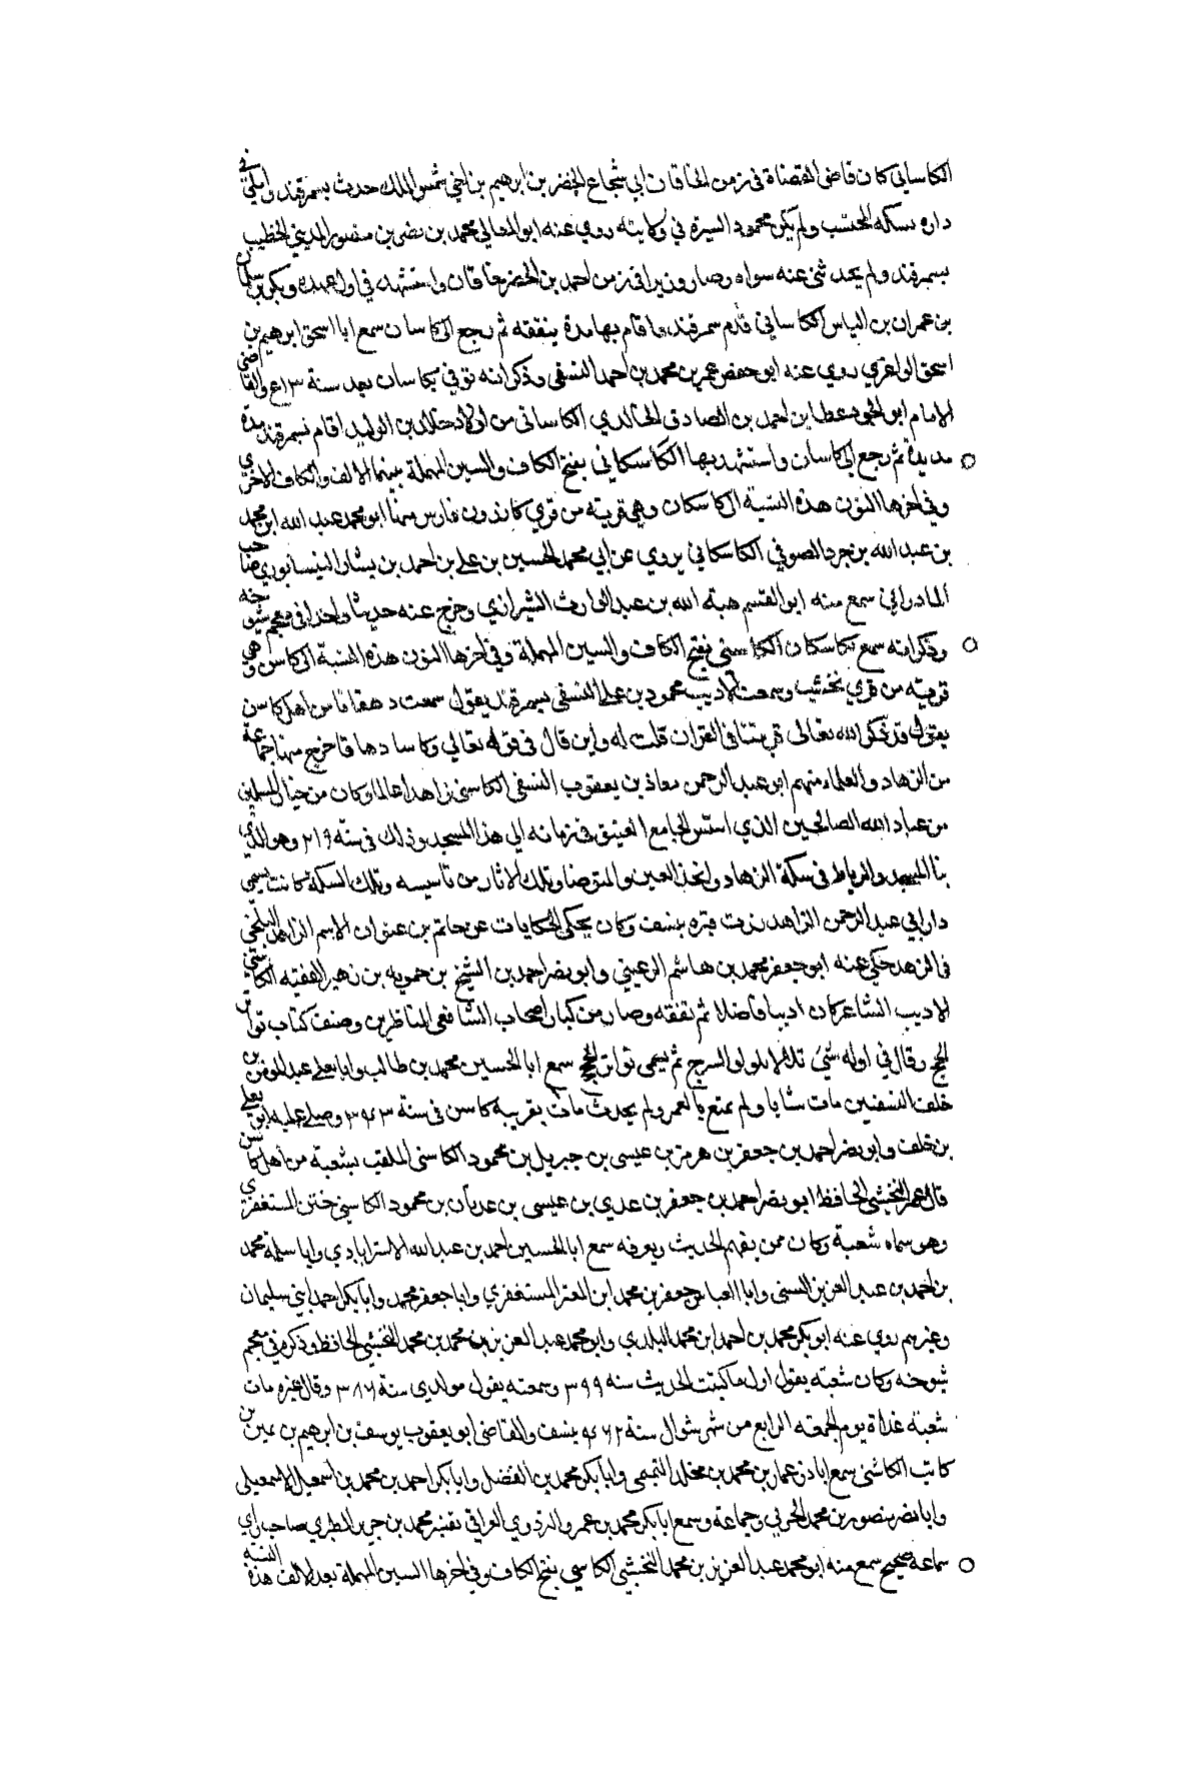 الكاساني كان قاضي القضاة في زمن الخاقان ابي شجاع الخضر بن ابرهيم بن اخي شمس الملك حدث بسمرقند واملى في
داره بسكه المحتسب ولم يكن محمود السيرة في ولايته روي عنه ابو المعالي محمد بن نصر بن منصور المديني الخطيب
بسمرقند ولم يحدثني عنه سواه وصار وزيرا في زمن احمد بن الخضر خاقان واستشهد في اول عهده وبكر بن سلمان
بن عمران بن الياس الكاساني قدم سمرقند واقام بها مدة يتفقه ثم رجع الى كاسان سمع ابا اسحق ابرهيم بن
اسحق الواعزي روي عنه ابو حفص عمر بن محمد بن احمد النسفي وذكر انه توفي بكاسان بعد سنة والقاضي
الامام ابو الجود عطا بن احمد بن الصادق الخالدي الكاساني من اولاد خالد بن الوليد اقام بسمرقند مدة
مديدة ثم رجع الى كاسان واستشهد بها الكاسكاني بفتح الكاف والسين المهملة بينهما الالف والكاف الاخري
وفي اخرها النون هذه النسبة الى كاسكان وهي قرية من قري كازرون فارس منها ابو محمد عبد الله ابن محمد
بن عبد الله بن جرد الصوفي الكاسكاني يروي عن ابي محمد الحسين بن علي بن احمد بن بشار النيسابوري صاحب
المادرائي سمع منه ابو القسم هبة الله بن عبد الوارث الشيرازي وخرج عنه حديثا واحدا في معجم شيوخه
وذكر انه سمع بكاسكان الكاسني بفتح الكاف والسين المهملة وفي اخرها النون هذه النسبة الى كاسن وهي
قرية من قري نخشب وسمعت الاديب محمود بن علي النسفي بسمرقند يقول سمعت دهقانا من اهل كاسن
يقول قد ذكر الله تعالى قريتنا في القران قلت له واين قال في قوله تعالي وكاسا دهاقا خرج منها جماعة
من الزهاد والعلماء منهم ابو عبد الرحمن معاذ بن يعقوب النسفي الكاسني زاهدا عالما وكان من خيار المسلمين
من عباد الله الصالحين الذي اسس الجامع العتيق في زمانه الي هذا المسجد وذلك في سنة ٢١٩ وهو الذي
بنا المسجد والرباط في سكة الزهاد واتخذ العين والمتوضا وتلك الاثار من تاسيسه وتلك السكة كانت تسمى
دار ابي عبد الرحمن الزاهد زرت قبره بنسف وكان يحكي الحكايات عن حاتم بن عنوان الاصم الزاهد البلخي
في الزهد حكي عنه ابو جعفر محمد بن هاشم الرعيني وابو نصر احمد بن الشيخ بن حمويه بن زهير الفقيه الكاسني
الاديب الشاعر كان اديبا فاضلا ثم تفقه وصار من كبار اصحاب الشافعي المناظرين وصنف كتاب تواتر
الحجج وقال في اوله شئ تلالا بلولو السرج ثم يسمى تواتر الحجج سمع ابا الحسين محمد بن طالب وابا يعلي عبد المومن بن
خلف النسفيين مات شابا ولم يمتع بالعمر ولم يحدث مات بقرية كاسن في سنة ٣٤٣ وصلي عليه ابو يعلي
بن خلف وابو نصر احمد بن جعفر بن هرمز بن عيسى بن جبريل بن محمود الكاسني الملقب بشعبة من اهل كاسن
قال عمر النخشبي الحافظ ابو نصر احمد بن جعفر بن عدي بن عيسى بن عدنان بن محمود الكاسني ختن المستغفري
وهو سماه شعبة وكان ممن يفهم الحديث ويعرفه سمع ابا الحسين احمد بن عبد الله الاسترابادي وابا سلمة محمد
بن احمد بن عبد العزيز السني وابا العباس جعفر بن محمد ابن المعتز المستغفري وابا جعفر محمد وابا بكر احمد ابني سليمان
وغيرهم روي عنه ابو بكر محمد بن احمد ابن محمد البلدي وابو محمد عبد العزيز بن محمد بن محمد النخشبي الحافظ وذكره في معجم
شيوخه وكان شعبة يقول اول ما كتبت الحديث سنه ٣٩٩ وسمعته يقول مولدي سنة ٣٨٦ وقال غيره مات
شعبة غداة يوم الجمعه الرابع من شهر شوال سنة ٤٦٢ بنسف والقاضي ابو يعقوب يوسف بن ابرهيم بن بن
كاتب الكاسني سمع اباذر عمار بن محمد بن مخلد التميمي وابا بكر محمد بن الفضل وابا بكر احمد بن محمد بن اسمعيل الاسمعيلي
وابا نصر منصور بن محمد الحربي وجماعة وسمع ابا بكر محمد بن عمرو الراوي تفسير محمد بن جرير الطبري صاحب راي
سماعه صحيح سمع منه ابو محمد عبد العزيز بن محمد النخشبي الكاسي بفتح الكاف وفي اخرها السين المهملة بعد الالف هذه النسبة